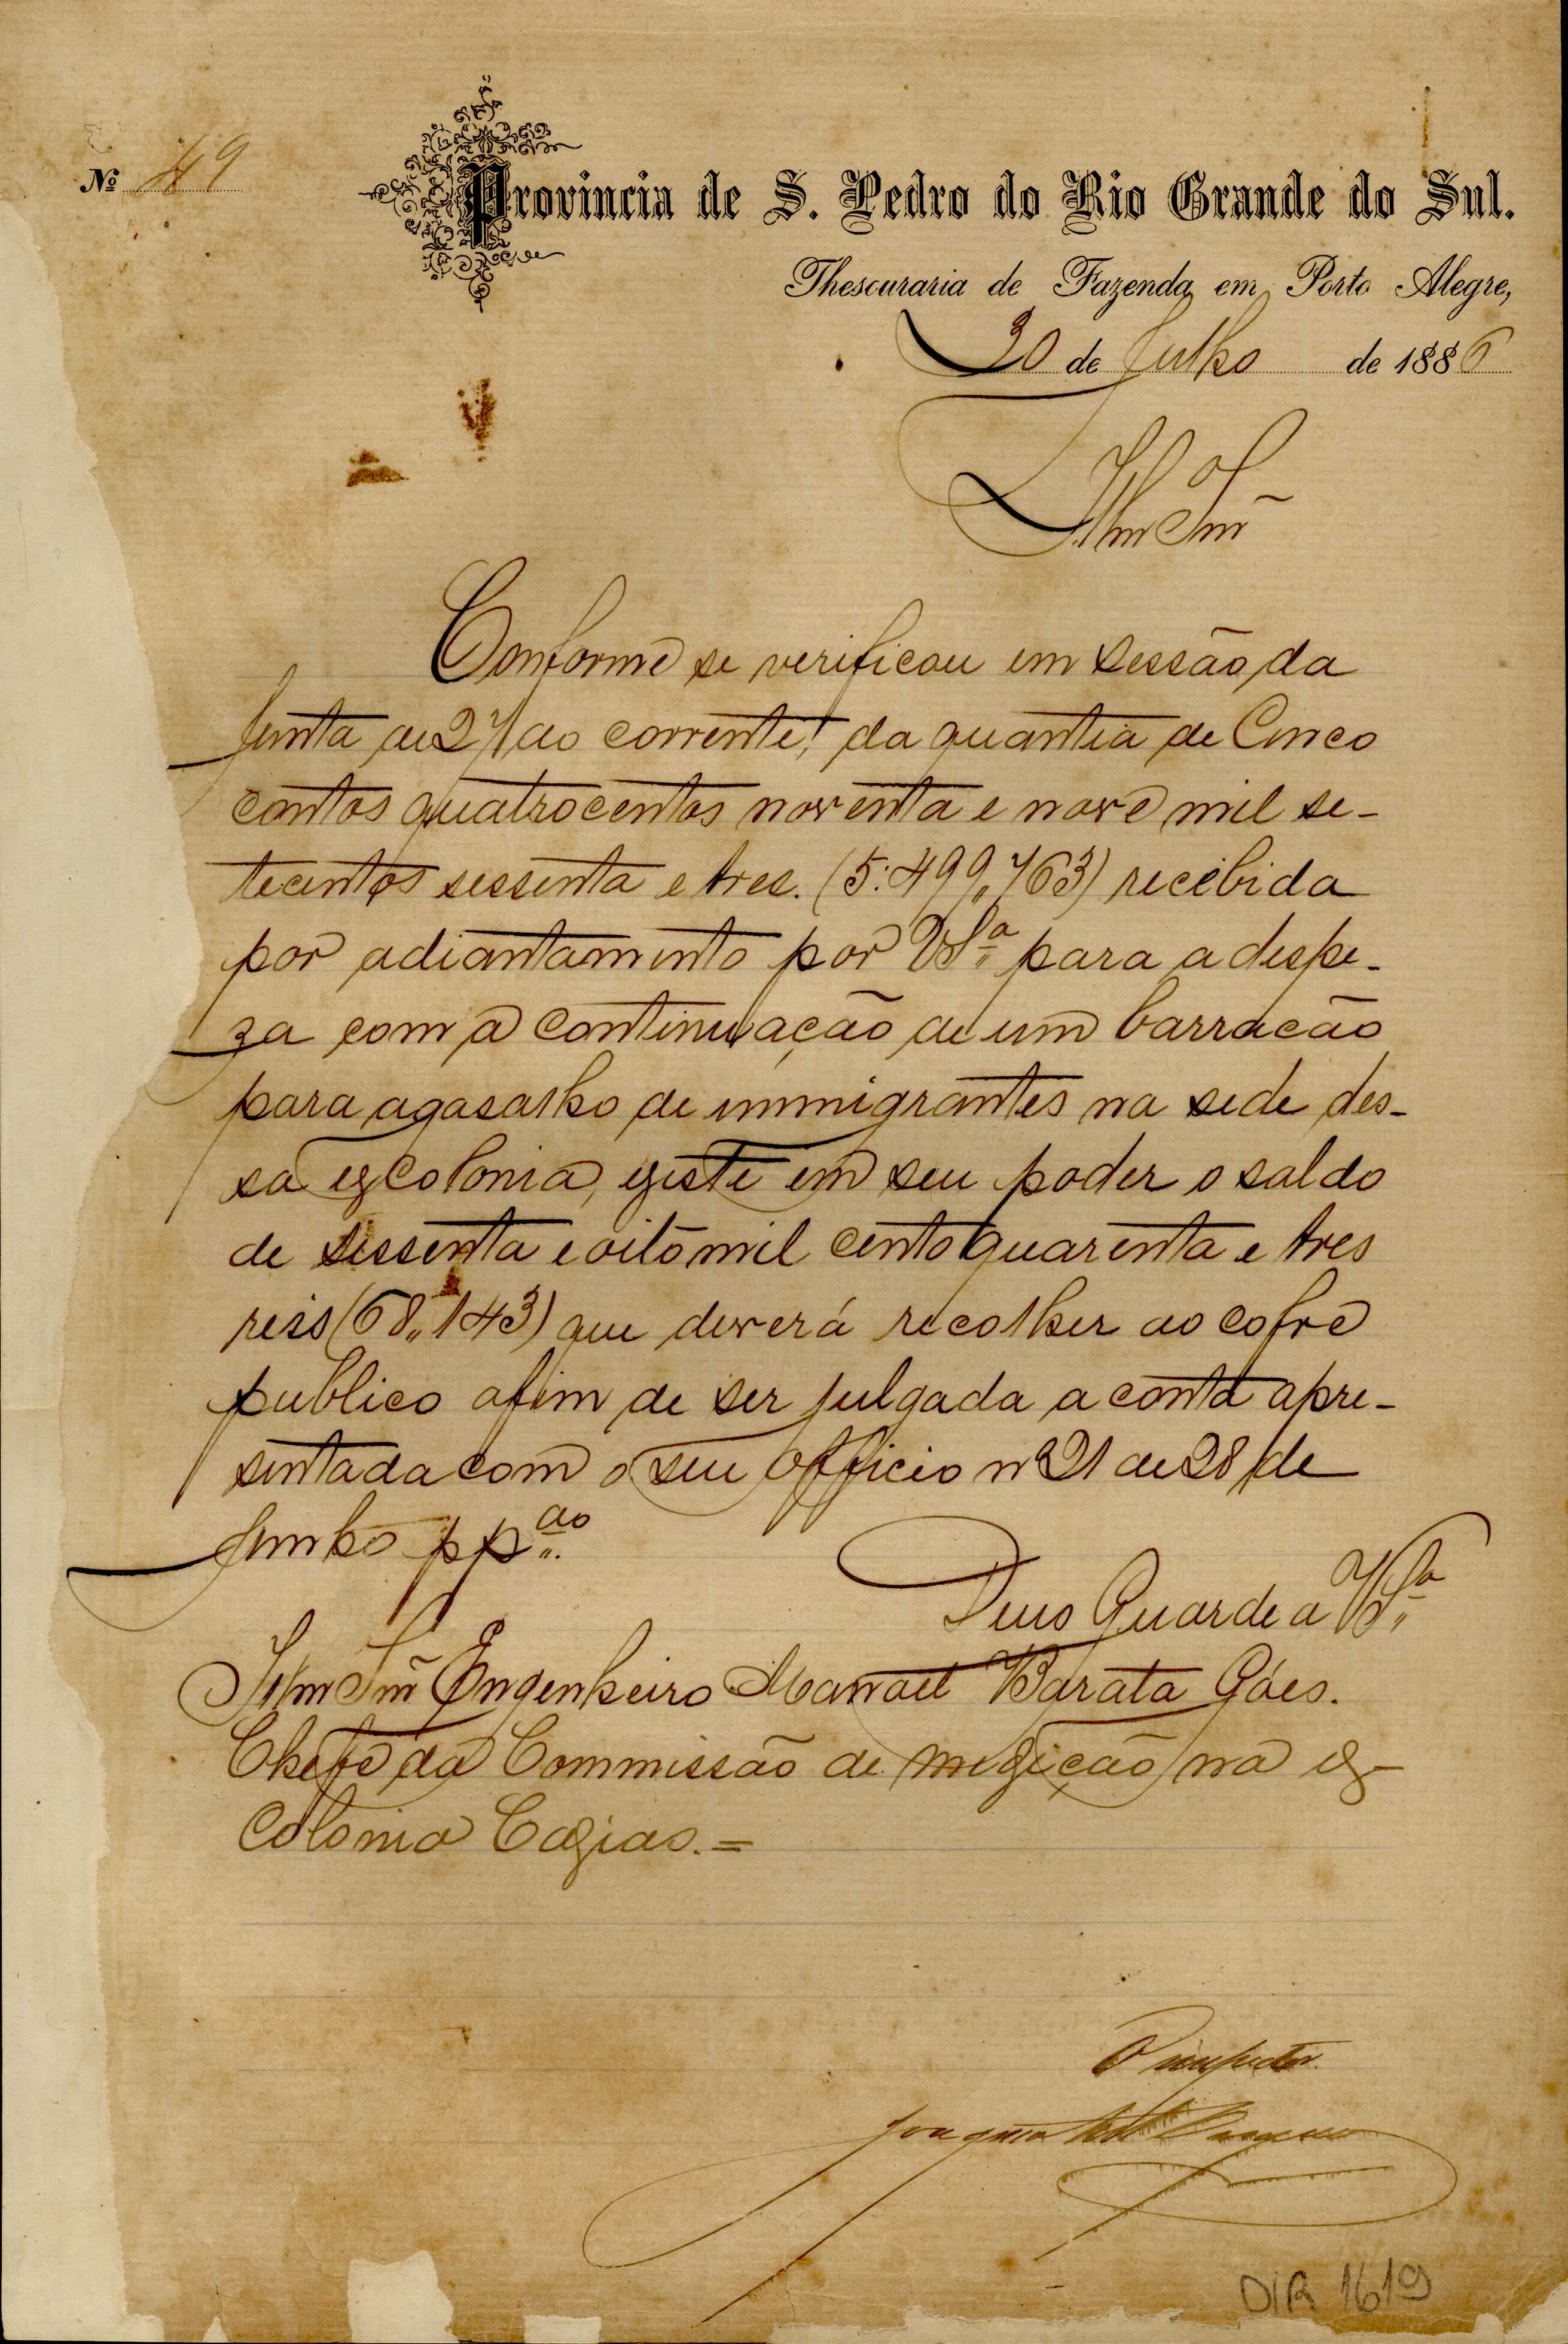 Nº 49
Provincia de S. Pedro do Rio Grande do Sul.
Thesouraria de Fazenda em Porto Alegre,
30 de Julho de 1886
Illm Snr
Conforme se verificou em sessão da
Junta de 27 do corrente, da quantia de Cinco
contos quatrocentos noventa e nove mil se-
tecentos sessenta e tres. (5:499,,763) recebida
por adiantamento por VSª para a despe-
za com a continuação de um barracão
para agasalho de immigrantes na sede des-
sa ex Colonia, existe em seu poder o saldo
de sessenta e oito mil cento quarenta e tres
reis (68,,143) que deverá recolher ao cofre
publico afim de ser julgada a conta apre-
sentada com o seu officio nº 21 de 28 de
Junho pp.ᵃᵒ
Deus Guarde a VSª
Illm Snr Engenheiro Manoel Barata Góes.
Chefe da Commissão de medição na ex
Colonia Caxias.=
O inspector
Joaquim
DIR 1619